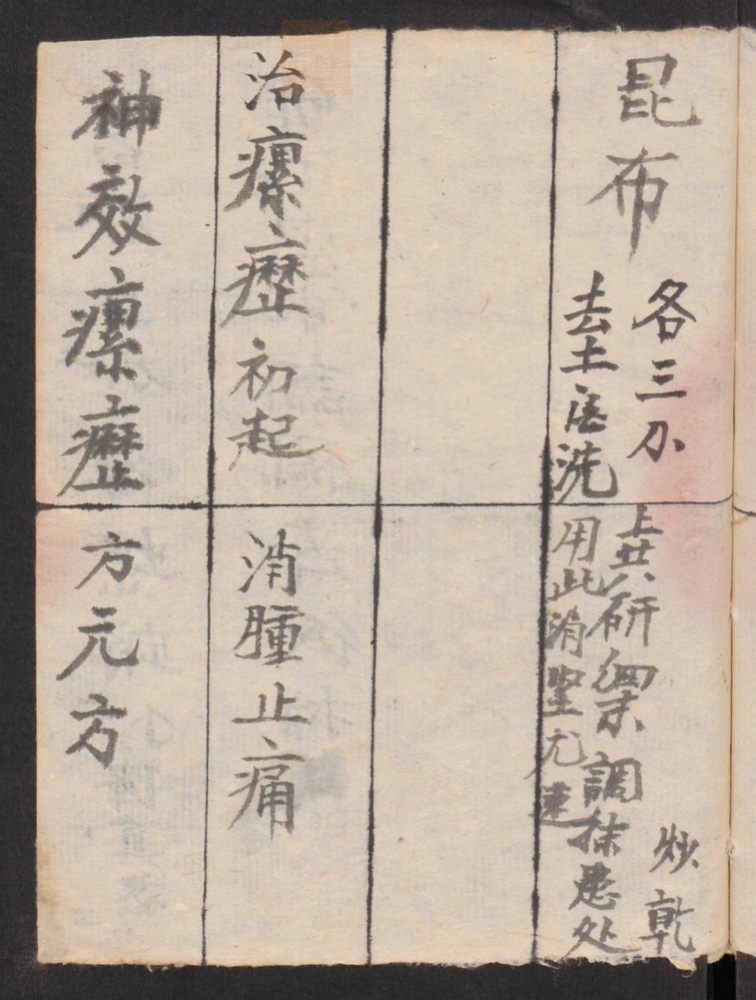 昆布
各三
去土 洗
炒乾
上共研細末調抹患处
用此消坚尤速
治瘰癧初起 消腫止痛
神效瘰癧方元方